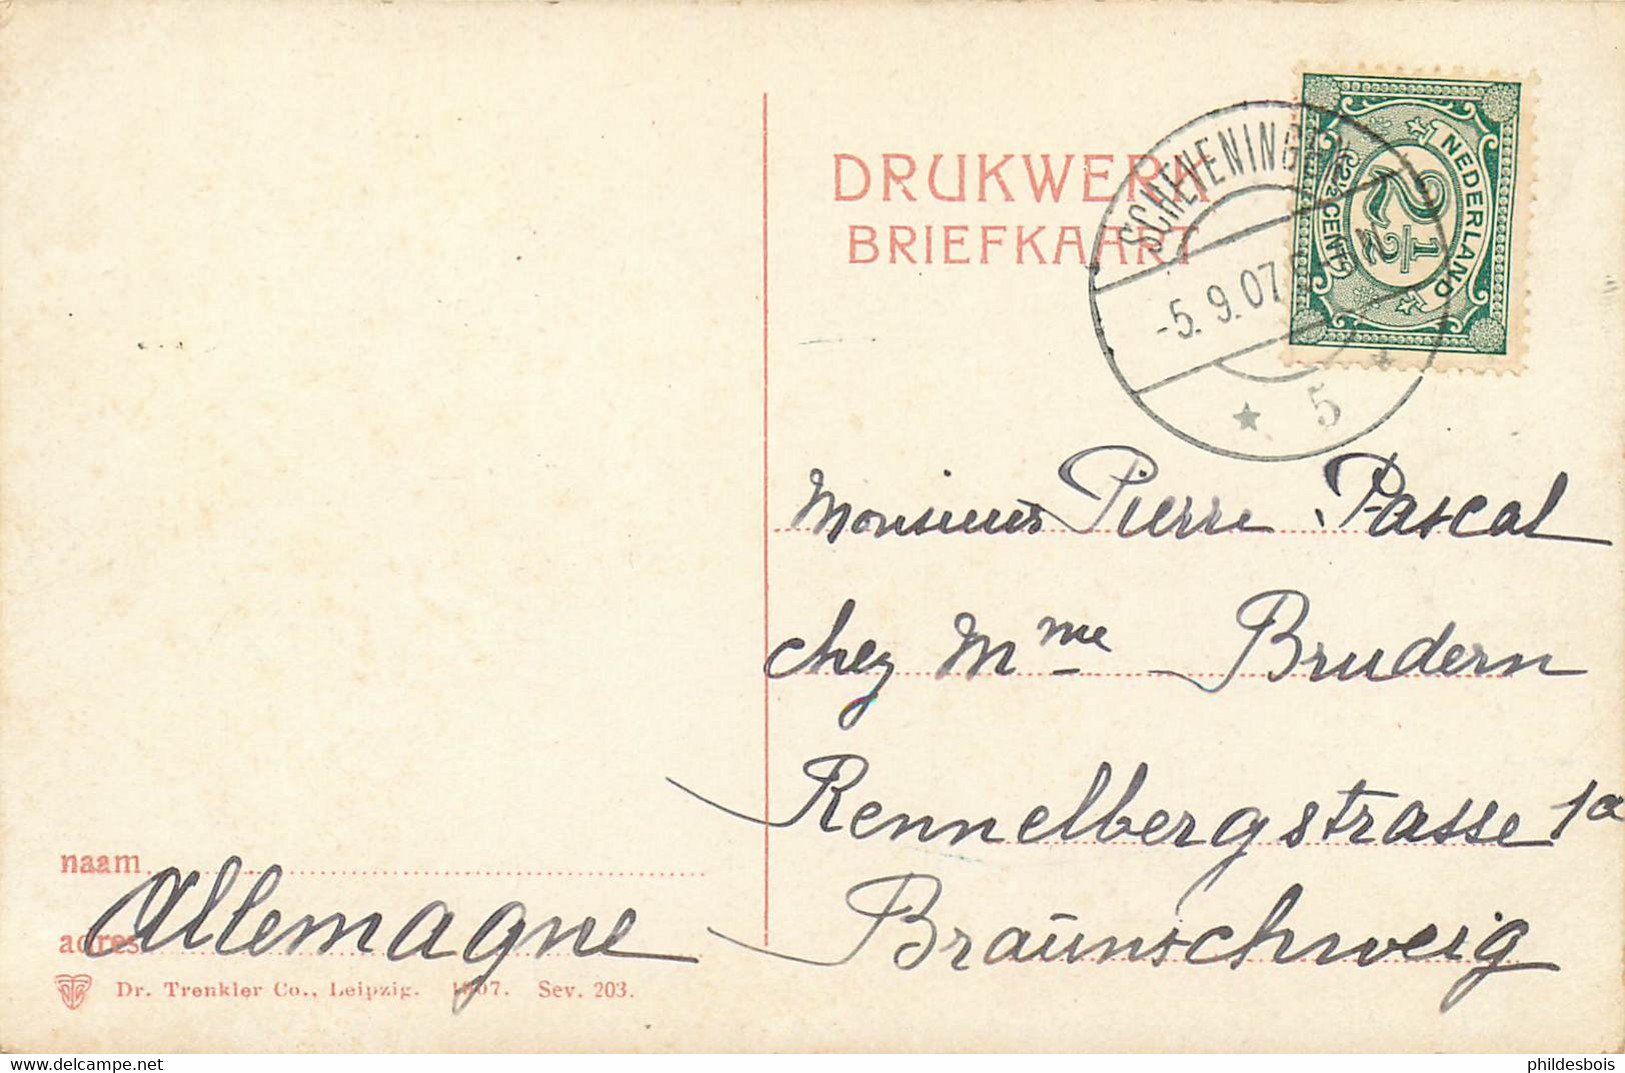 DRUKWERK
BRIEFKAART
SCHEVENINGEN
-5.9.07
5
NEDERLAND
2½
2½ CENT
Monsieur Pierre Pascal
chez Mme Brudern
Rennelbergstrasse 1a
Braunschweig
naam
Allemagne
adres
Dr. Trenkler Co., Leipzig. 1907. Sev. 203.
phildesbois